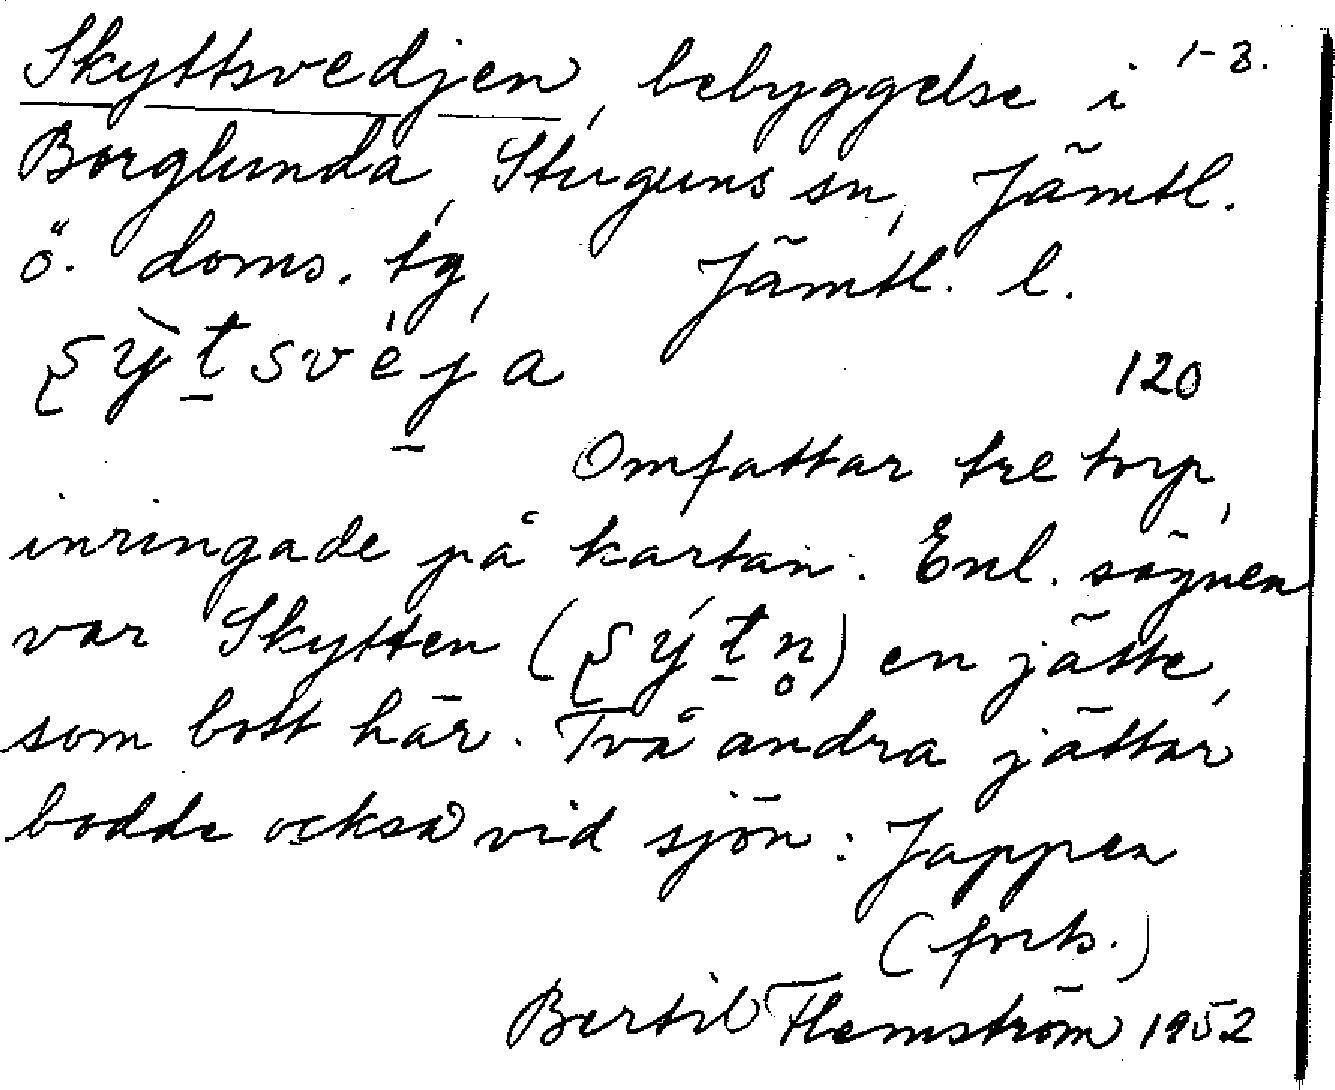 Skyttsvedjen, bebyggelse i 1-3.
Borglunda, Stuguns sn, Jämtl.
ö. doms. tg, Jämtl. l.
ʂy̆̀tsvèja
120
Omfattar tre torp,
inringade på kartan. Enl. sägnen
var Skytten (ʂýtn̥) en jätte,
som bott här. Två andra jättar
bodde också vid sjön: Jappen
(forts.)
Bertil Flemström 1952